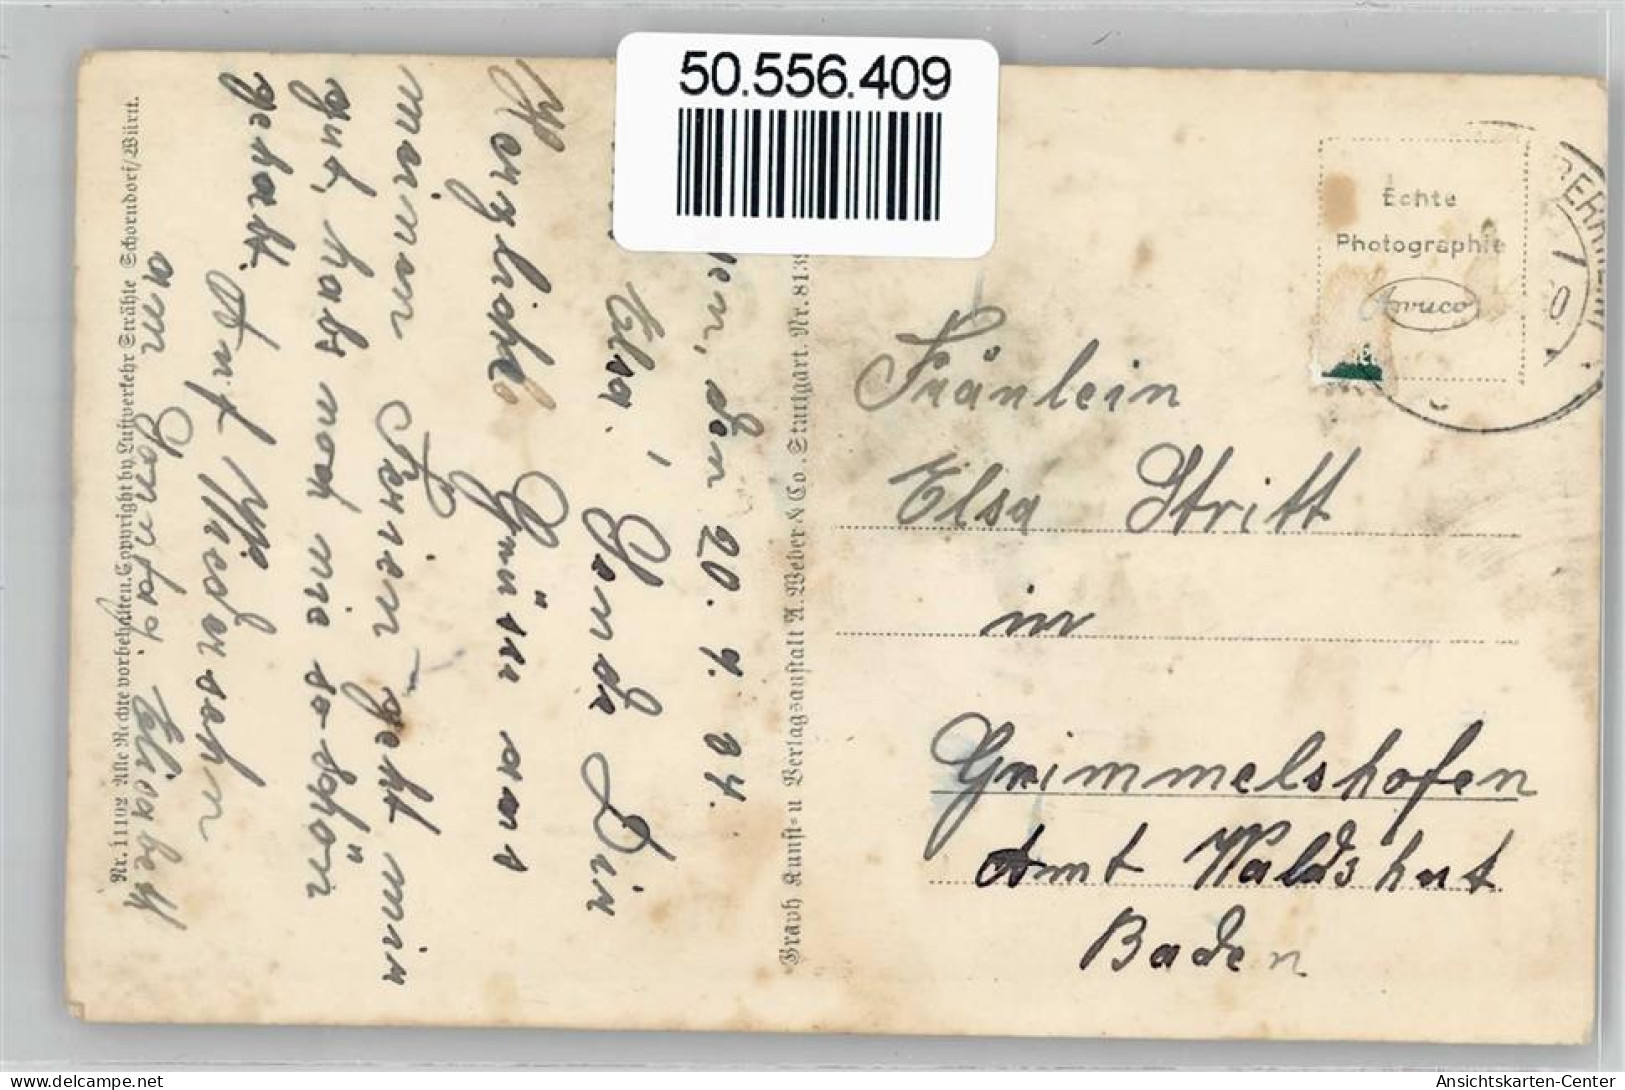 50.556.409
en, den 20. 4. 34.
Elsa! Sende Dir
Herzliche Grüsse aus
meinen Ferien geht mir
gut, habs noch nie so schön
gehabt. Auf Wiedersehn
am Sonntag. Elisabeth
Nr. 11102 Alle Rechte vorbehalten. Copyright by Luftverkehr Strähle Schorndorf/Württ.
Graph Kunst- u Verlagsanstalt A. Weber & Co. Stuttgart. Nr. 8139
Echte
Photographie
Arvuco
Fräulein
Elsa Stritt
in
Grimmelshofen
Amt Waldshut
Baden
Ansichtskarten-Center